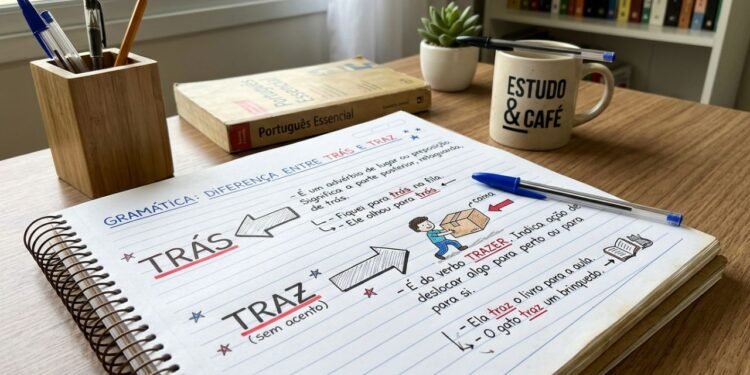 ESTUDO
& CAFÉ
Português Essencial
Português Essencial
GRAMÁTICA: DIFERENÇA ENTRE TRÁS E TRAZ
TRÁS
- É um advérbio de lugar ou preposição.
Significa a parte posterior, retaguarda,
de trás.
- Fiquei para trás na fila.
- Ele olhou para trás
TRAZ
(sem acento)
caixa
- É do verbo TRAZER. Indica ação de
deslocar algo para perto ou para
para si.
- Ela traz o livro para a aula.
- O gato traz um brinquedo.